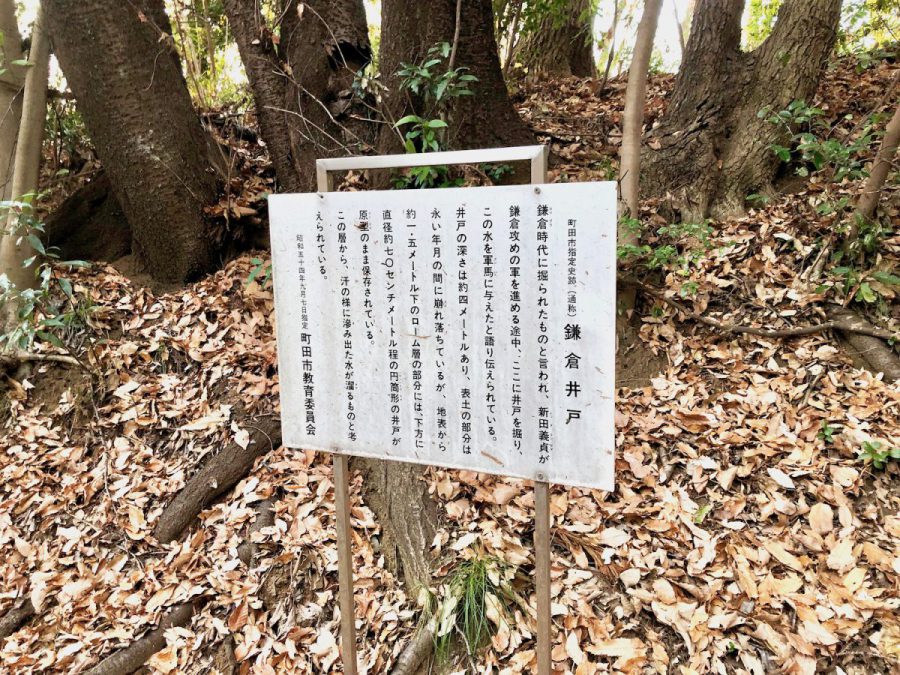 町田市指定史跡（通称）鎌倉井戸
鎌倉時代に掘られたものと言われ、新田義貞が
鎌倉攻めの軍を進める途中、ここに井戸を掘り、
この水を軍馬に与えたと語り伝えられている。
井戸の深さは約四メートルあり、表土の部分は
永い年月の間に崩れ落ちているが、地表から
約一・五メートル下のローム層の部分には、下方に
直径約七〇センチメートル程の円筒形の井戸が
原型のまま保存されている。
この層から、汗の様に滲み出た水が溜るものと考
えられている。
昭和五十四年九月七日指定 町田市教育委員会